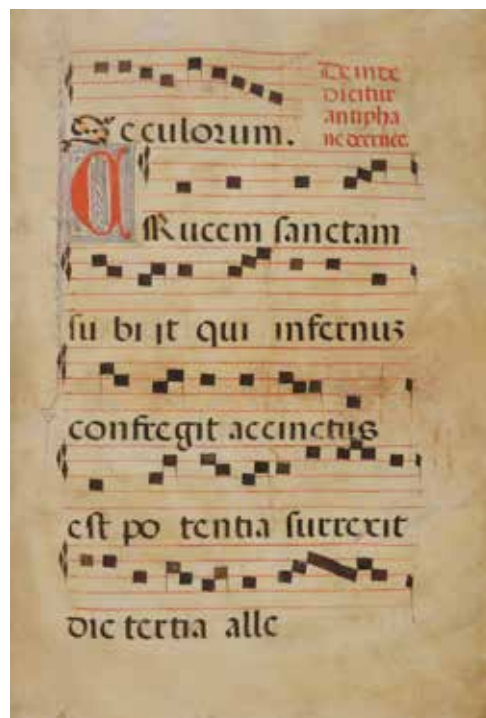 De inde
dicitur
antipha
Seculorum.
CRucem sanctam
su bi it qui infernus
confregit accinctus
est po tentia surrexit
die tertia alle